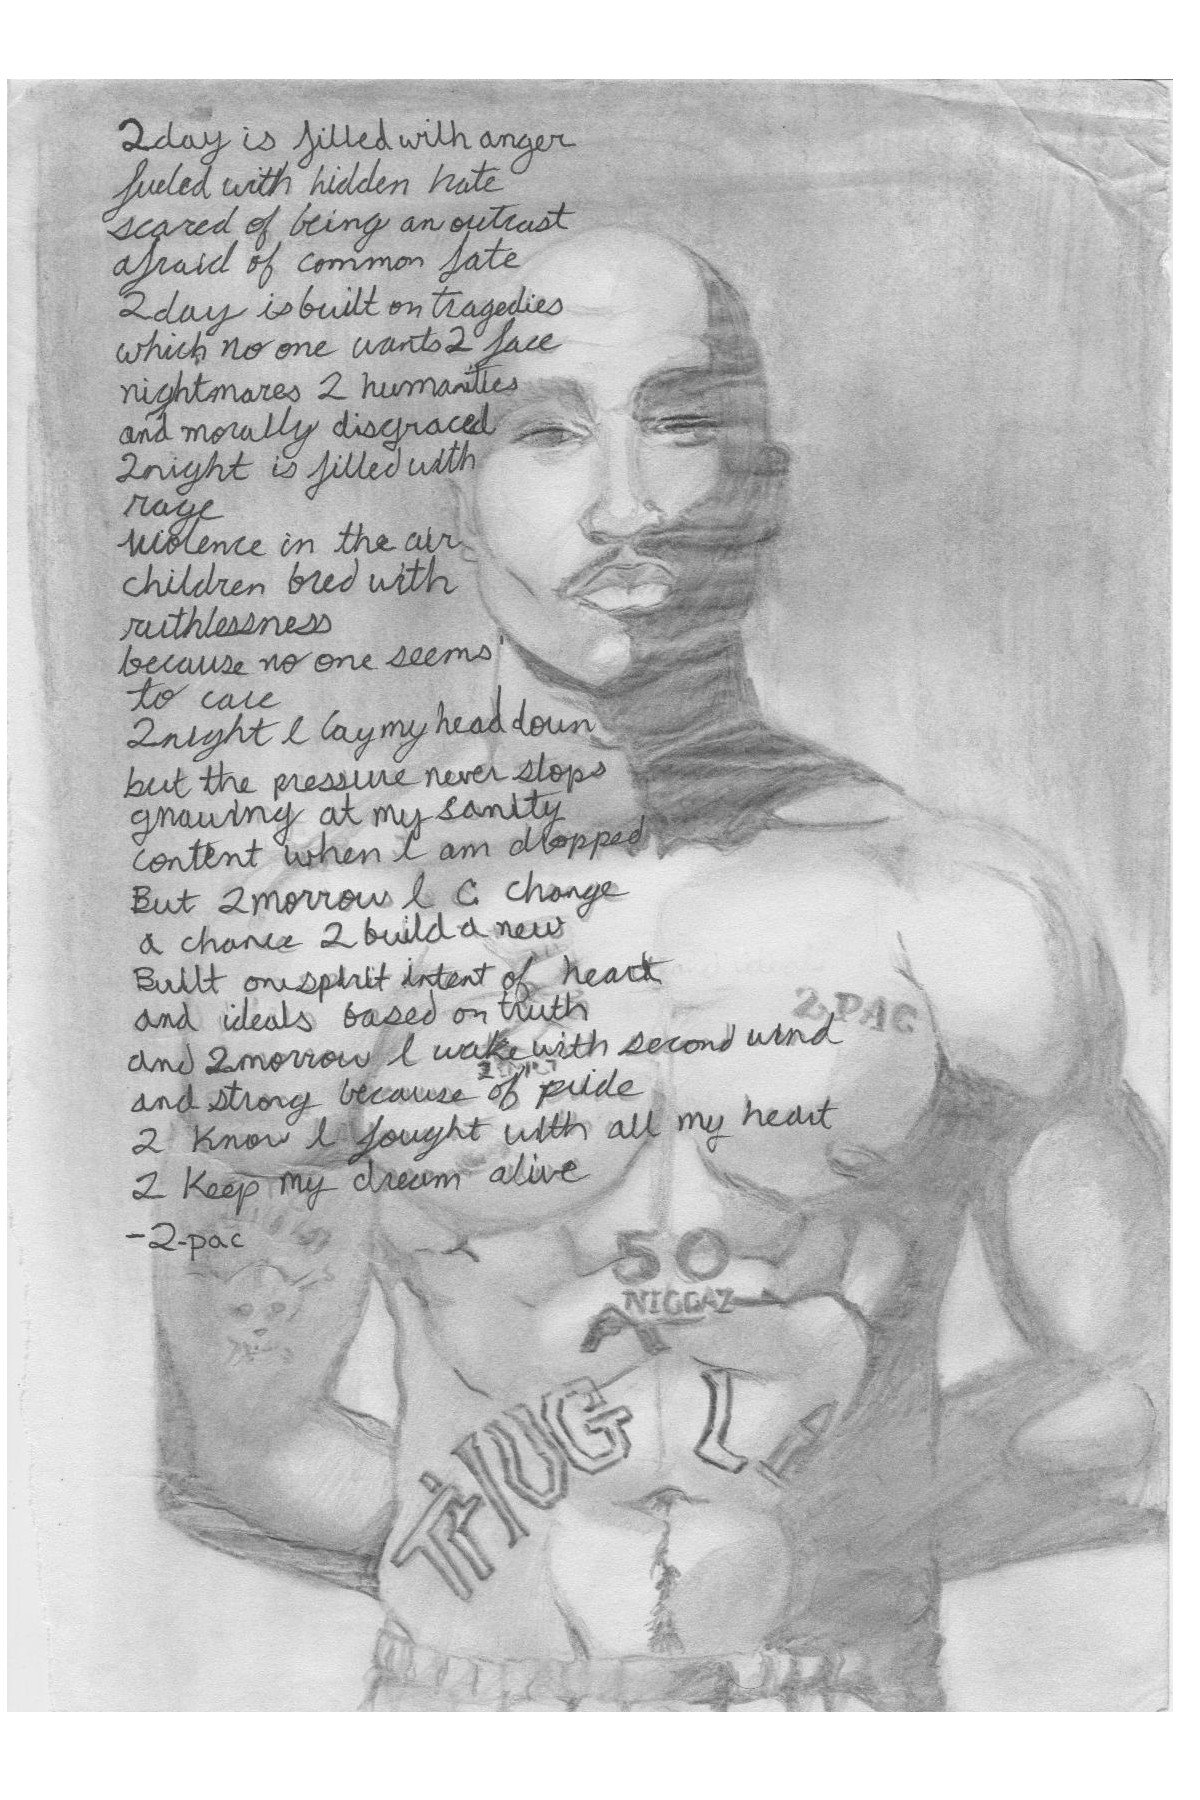 2day is filled with anger
fueled with hidden hate
scared of being an outcast
afraid of common fate
2day is built on tragedies
which no one wants 2 face
nightmares 2 humanities
and morally disgraced
2night is filled with
rage
violence in the air
children bred with
ruthlessness
because no one seems
to care
2night I lay my head down
but the pressure never stops
gnawing at my sanity
content when I am dropped
But 2morrow I C change
a chance 2 build a new
Built on spirit intent of heart
and ideals based on truth
and 2morrow I wake with second wind
and strong because of pride
2 Know I fought with all my heart
2 Keep my dream alive
-2-pac
2PAC
50
NIGGAZ
THUG LI